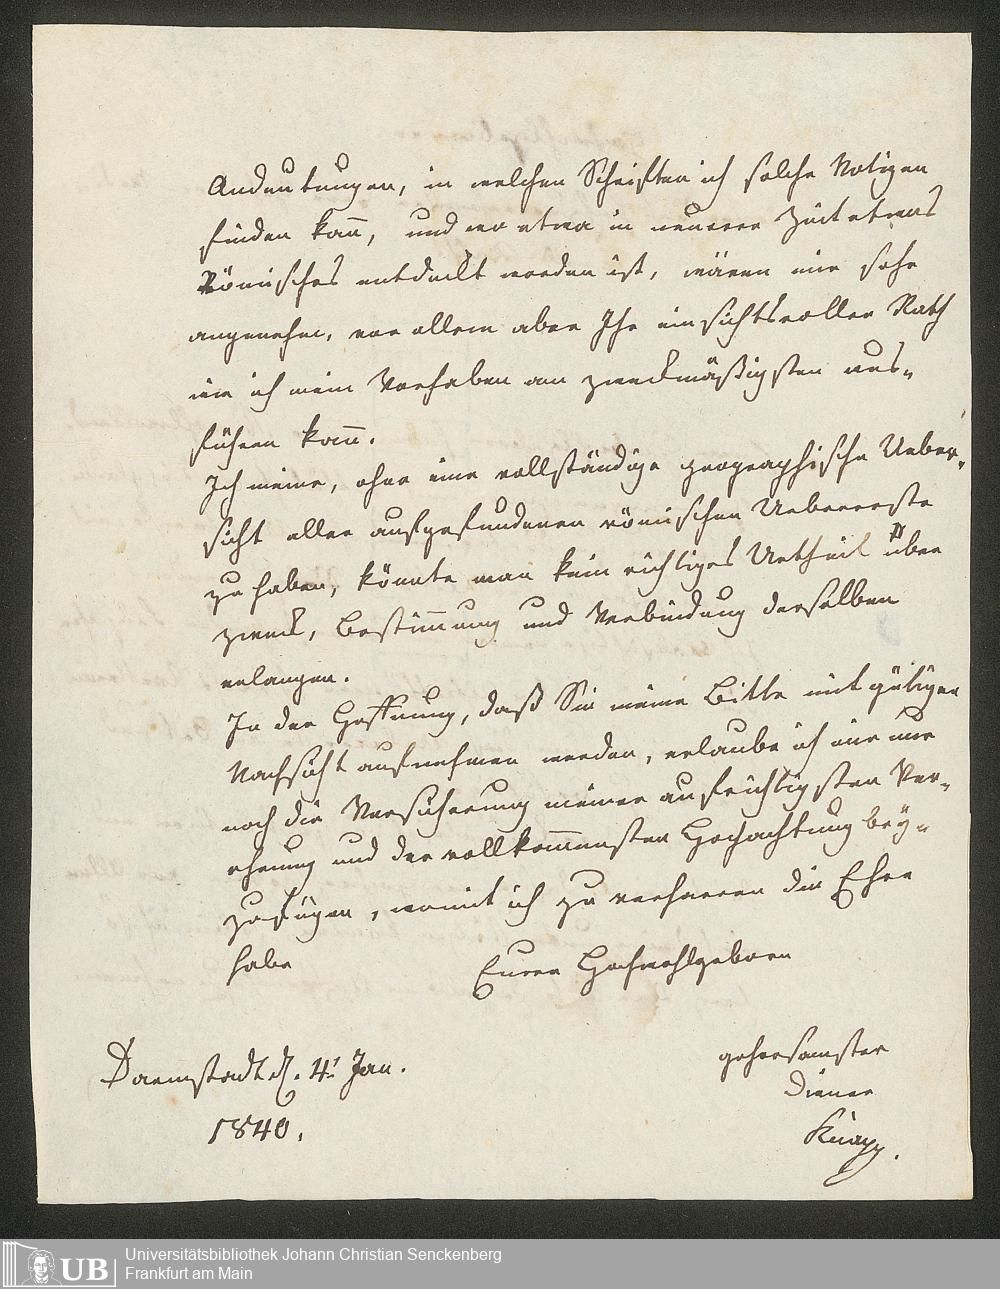 Andeutungen, in welchen Schriften ich solche Notizen
finden kann, und wo etwa in neuerer Zeit etwas
Römisches entdeckt worden ist, wären mir sehr
angenehm, vor allem aber Ihr einsichtsvoller Rath
wie ich mein Vorhaben am zweckmäßigsten aus-
führen kann.
Ich meine, ohne eine vollständige geographische Ueber-
sicht aller aufgefundenen römischen Ueberreste
zu haben, könnte man kein richtiges Urtheil über
Zweck, Bestimmung und Verbindung derselben
erlangen.
In der Hoffnung, daß Sie meine Bitte mit gütiger
Nachsicht aufnehmen werden, erlaube ich mir nur
noch die Versicherung meiner aufrichtigsten Ver-
ehrung und der vollkommensten Hochachtung bey-
zufügen, womit ich zu verharren die Ehre
habe
Eurer Hochwohlgeboren
gehorsamster
Diener
Knapp.
Darmstadt d. 4t Jan.
1840.
Universitätsbibliothek Johann Christian Senckenberg
Frankfurt am Main
UB